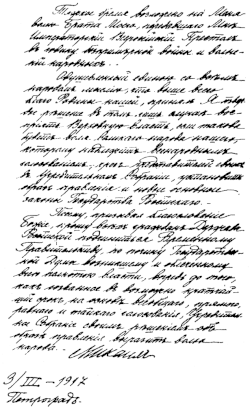 Тяжкое бремя возложено на Меня
волею Брата Моего, передавшего Мне
Императорский Всероссийский Престол
в годину безпримѣрной войны и волне-
ній народныхъ.
Одушевленный единою со всѣмъ
народомъ мыслію, что выше всего
благо Родины нашей, принялъ Я твер-
дое рѣшеніе въ томъ лишь случаѣ вос-
пріять Верховную власть, если такова
будетъ воля Великаго народа нашего,
которому надлежитъ всенароднымъ
голосованіемъ, чрезъ представителей своихъ
въ Учредительномъ Собраніи, установить
образъ правленія и новые основные
законы Государства Россійскаго.
Посему, призывая благословеніе
Божіе, прошу всѣхъ гражданъ Державы
Россійской подчиниться Временному
Правительству, по почину Государствен-
ной Думы возникшему и облеченному
всею полнотою власти, впредь до того,
какъ созванное въ возможно кратчай-
шій срокъ, на основѣ всеобщаго, прямого,
равнаго и тайнаго голосованія, Учредитель-
ное Собраніе своимъ рѣшеніемъ объ
образѣ правленія выразитъ волю
народа.
Михаилъ
3/III – 1917
Петроградъ.